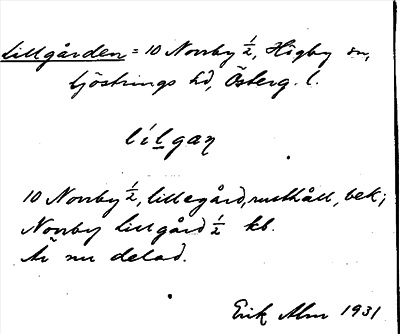 Lillgården = 10 Norrby 1/2, Högby sn,
Göstrings hd, Österg. l.
lílgaɳ
10 Norrby 1/2, lillegård, rusthåll, bek;
Norrby Lillgård 1/2 kb.
Är nu delad.
Erik Alm 1931